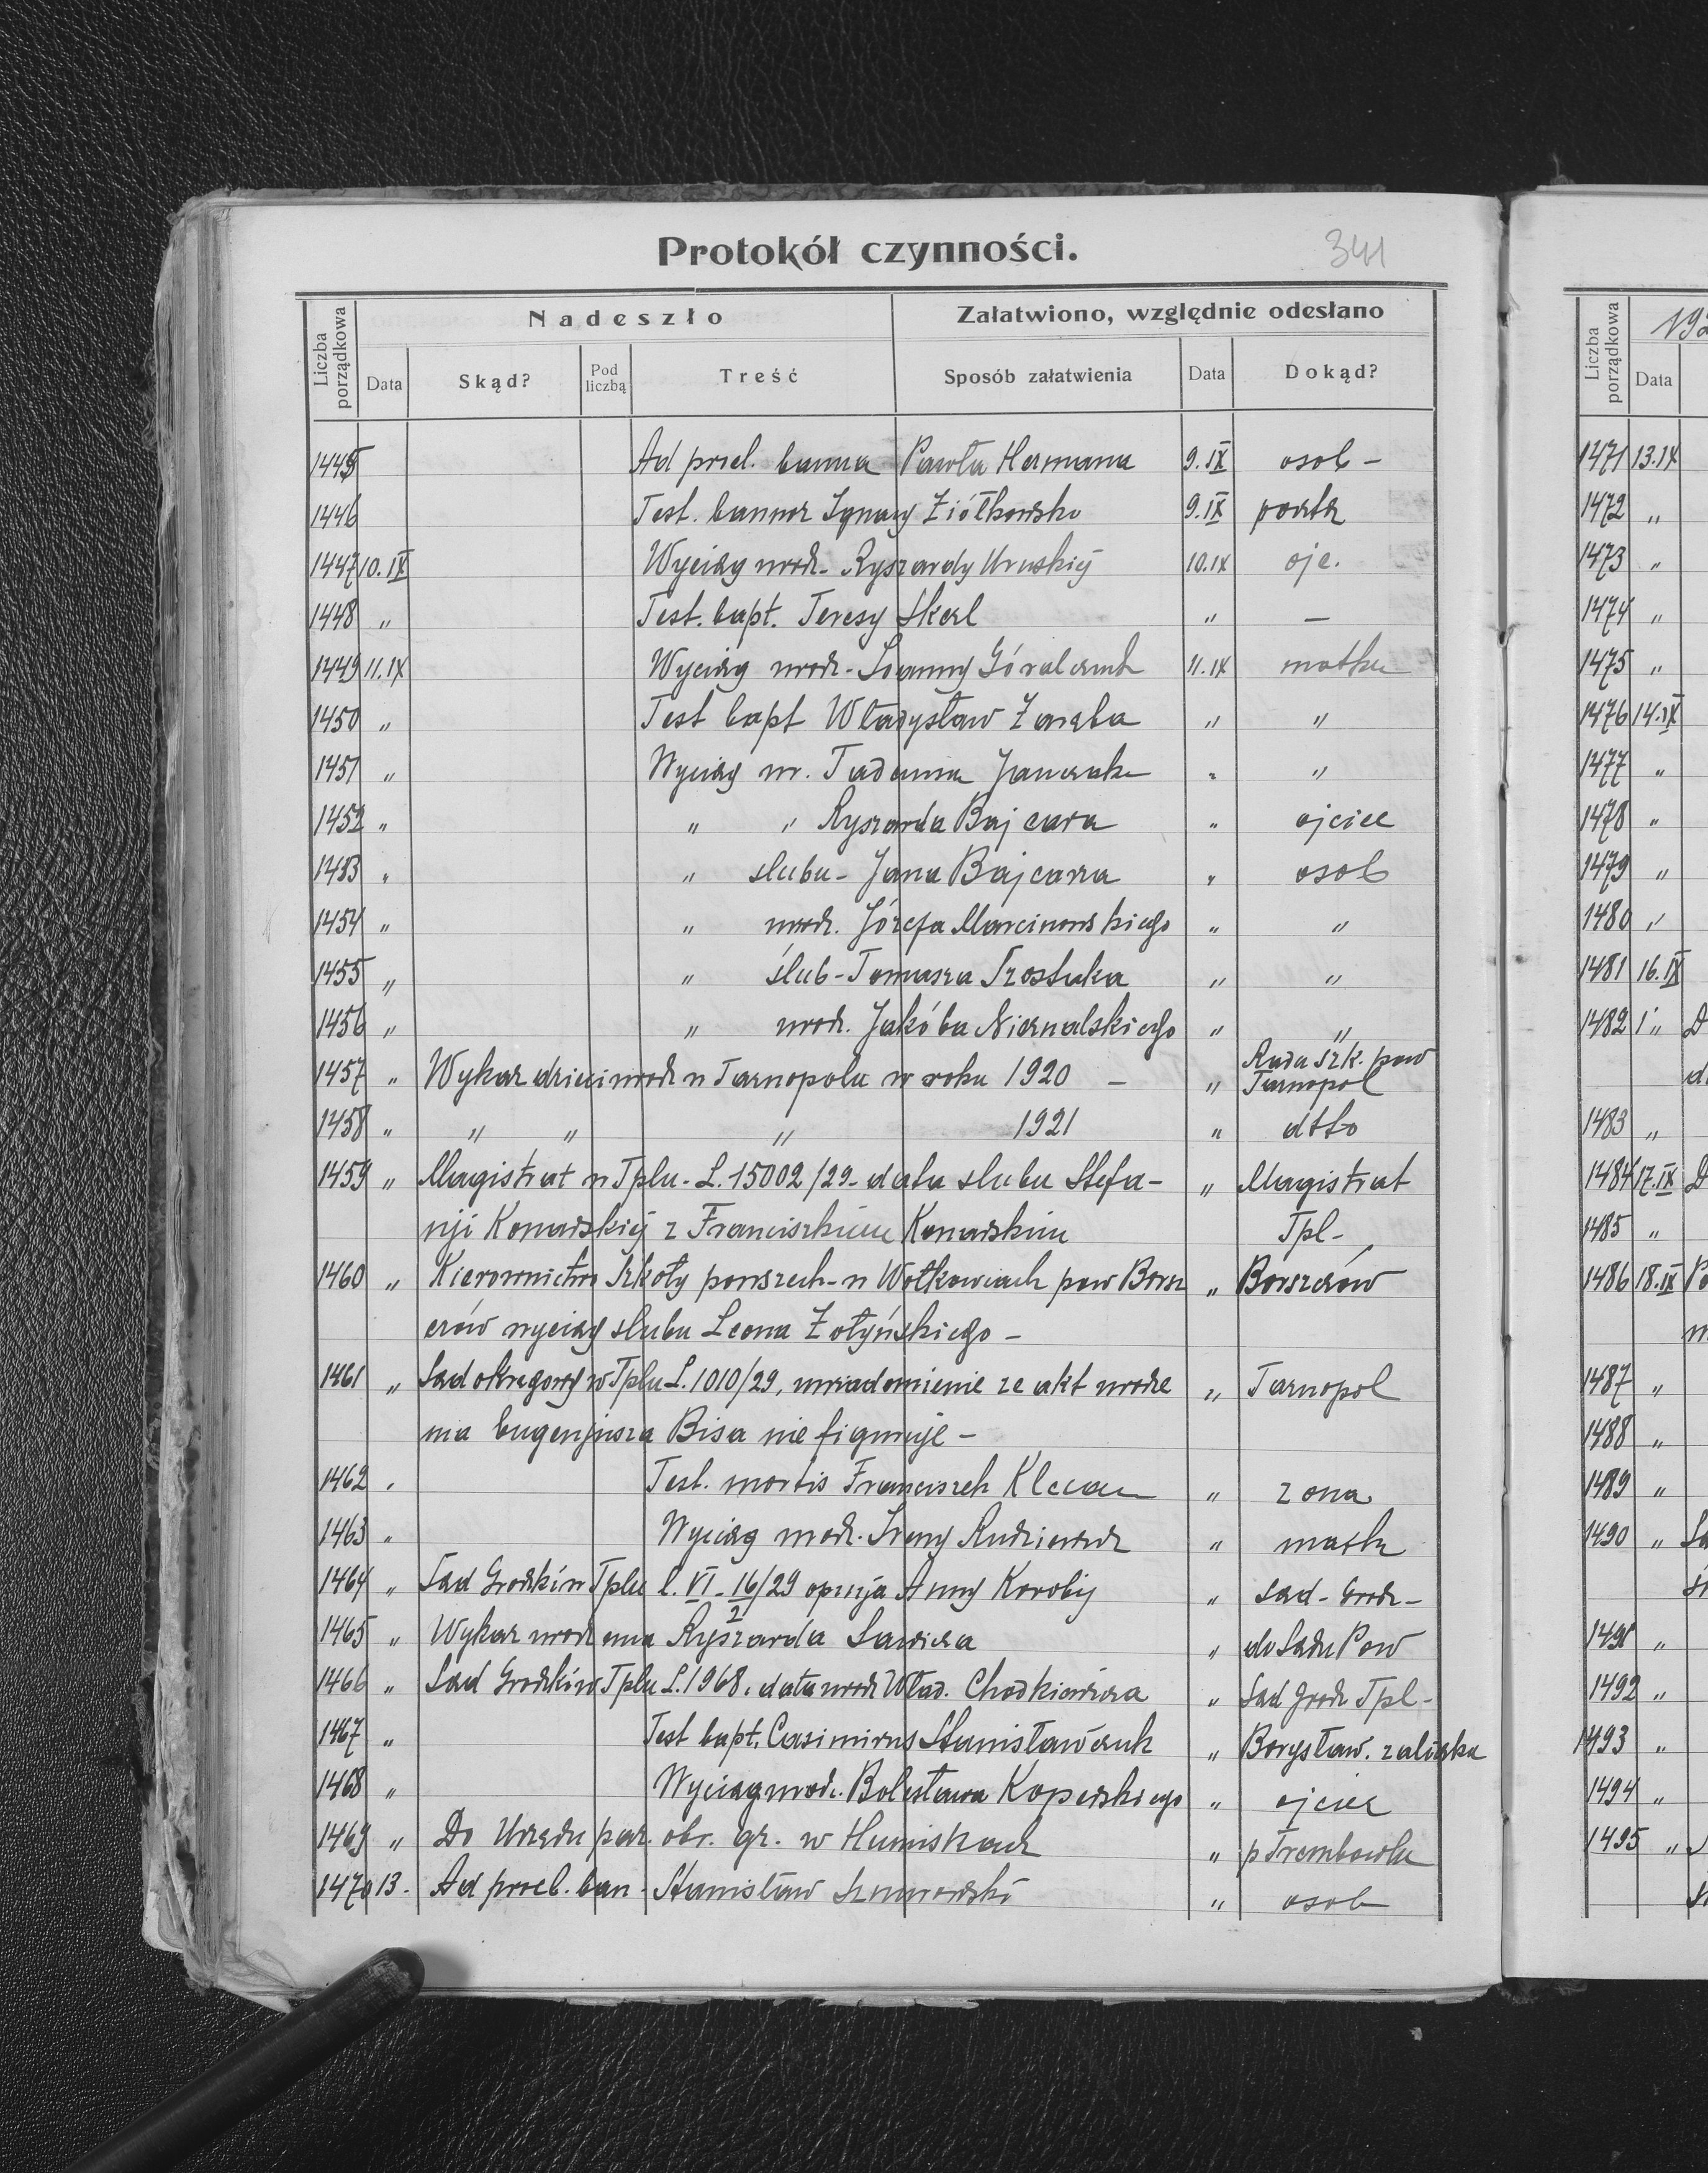 Protokół czynności.
341
Liczba porządkowa
Nadeszło
Załatwiono, względnie odesłano
Data
Skąd?
Pod liczbą
Treść
Sposób załatwienia
Data
Dokąd?
1445 Ad procl. banna Pawła Hermana 9.IX osob -
1446 Test. bannor Ignacy Ziółkowski 9.IX poczta
1447 10.IX Wyciąg urodz. Ryszardy Uruskiej 10.IX ojc.
1448 " Test. bapt. Teresy Skerl " —
1449 11.IX Wyciąg urodz. Joanny Góralczuk 11.IX matka
1450 " Test bapt Władysław Zaręba " "
1451 " Wyciąg ur. Tadeusza Janczaka " "
1452 " " " Ryszarda Bajcara " ojciec
1453 " " ślubu - Jana Bajcara " osob
1454 " " urodz. Józefa Marcinowskiego " "
1455 " " ślub - Tomasza Szostaka " "
1456 " " urodz. Jakóba Niernalskiego " "
1457 " Wykaz dzieci urodz w Tarnopolu w roku 1920 — " Rada szk. pow
Tarnopol
1458 " " " " 1921 " dtto
1459 " Magistrat w Tplu - L. 15002/29 - data ślubu Stefa- " Magistrat
nji Konarskiej z Franciszkiem Konarskim Tpl -
1460 " Kierownictwo Szkoły powszech - w Wołkowcach pow Borsz " Borszczów
czów wyciąg ślubu Leona Zołyńskiego -
1461 " Sąd okręgowy w Tplu L. 1010/29, uwiadomienie że akt urodze " Tarnopol
nia Eugenjusza Bisa nie figuruje -
1462 " Test. mortis Franciszek Klecan " żona
1463 " Wyciąg urodz. Ireny Rudziewicz " matka
1464 " Sąd Grodzki w Tplu l. VI - 16/29 opinja Anny Korobij " Sąd - Grodz -
2
1465 " Wykaz urodzenia Ryszarda Sawicza " do Sądu Pow
1466 " Sąd Grodzki w Tplu L. 1968. data urodz Wład. Chodkiewicza " Sąd Grodz Tpl -
1467 " Test bapt. Casimirus Stanisławczuk " Borysław. zaliczka
1468 " Wyciąg urodz. Bolesława Koperskiego " ojciec
1469 " Do Urzędu par. obr. gr. w Humniskach " p Trembowla
1470 13. Ad procl. ban - Stanisław " osob
Liczba porządkowa
192
Data
1471 13.IX
1472 "
1473 "
1474 "
1475 "
1476 14.IX
1477 "
1478 "
1479 "
1480 "
1481 16.IX
1482 "
1483 "
1484 17.IX
1485 "
1486 18.IX
1487 "
1488 "
1489 "
1490 "
1491 "
1492 "
1493 "
1494 "
1495 "